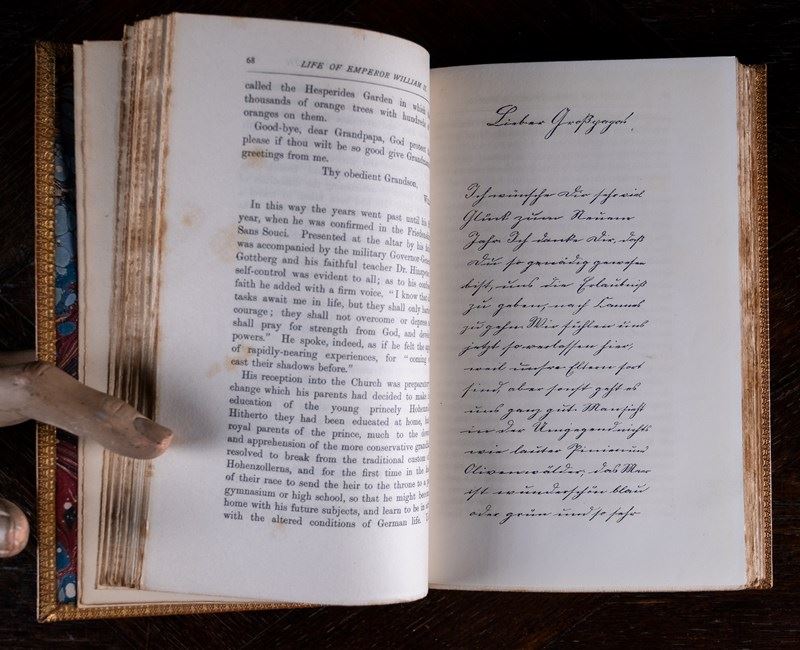 68
LIFE OF EMPEROR WILLIAM II.
called the Hesperides Garden in which
thousands of orange trees with hundreds
oranges on them.
Good-bye, dear Grandpapa, God protect
please if thou wilt be so good give Grandmama
greetings from me.
Thy obedient Grandson,
In this way the years went past until his
year, when he was confirmed in the
Sans Souci. Presented at the altar by his
was accompanied by the military
Gottberg and his faithful teacher Dr.
self-control was evident to all; as to his
faith he added with a firm voice, "I know that
tasks await me in life, but they shall only
courage; they shall not overcome or depress
shall pray for strength from God, and
powers." He spoke, indeed, as if he felt the
of rapidly-nearing experiences, for "coming
cast their shadows before."
His reception into the Church was
change which his parents had decided to make
education of the young princely
Hitherto they had been educated at home,
royal parents of the prince, much to the
and apprehension of the more conservative
resolved to break from the traditional custom
Hohenzollerns, and for the first time in the
of their race to send the heir to the throne to a
gymnasium or high school, so that he might
home with his future subjects, and learn to be in
with the altered conditions of German life.
Lieber Großpapa,
Ich wünsche Dir sehr viel
Glück zum Neuem
Jahr. Ich danke Dir, daß
Du so genädig gewesen
bist, uns die Erlaubniß
zu geben, nach Cannes
zu gehn. Wir fühlen uns
jetzt so verlassen hier,
weil unsre Eltern fort
sind, aber sonst geht es
uns ganz gut. Man sieht
in der Umgegend nichts
wie lauter Pinien und
Olivenwälder, das Meer
ist wunderschön blau
oder grün und so sehr